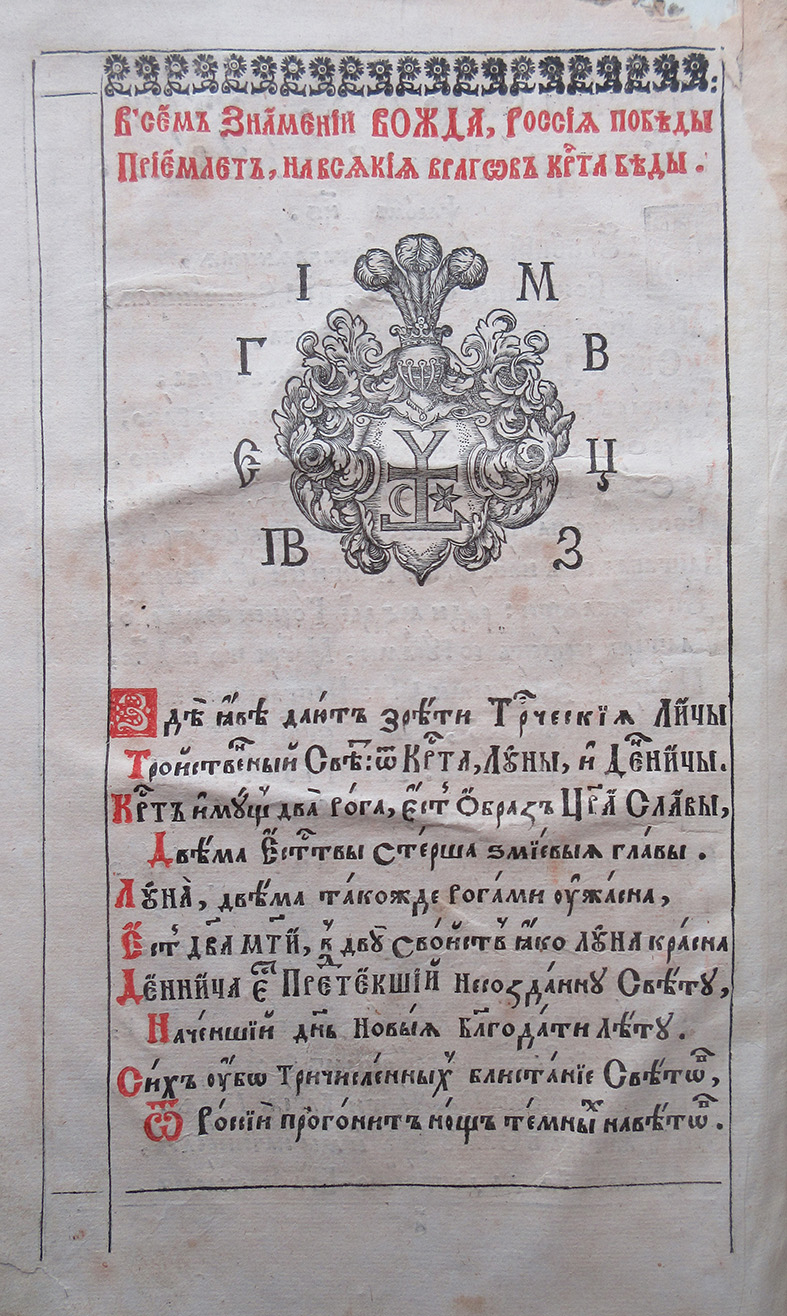 В̾се́мъ Зна́менїи ВОЖДА, Ро́ссїѧ побѣ́ды
Прїе́млетъ, на всѧ́кїѧ враго́въ Кр҃та бѣ́ды .
І М
Г В
Є Ц
ПВ З
Здѣ̀ ꙗ҆́вѣ даю́тъ зрѣ́ти Тр҇ческїѧ Ли́цы
Тро́йстве́нный Свѣ́: ѿ Кр҇та, Лꙋны̀, и҆ Де́нницы.
Кр҇тъ и҆мꙋ́щ два̀ ро́га, є҆́ст Ѻ҆́бразъ Цр҃ѧ̀ Сла́вы,
Двѣ́ма Є҆ст҇твы сте́рша ѕмі́евыѧ главы̀ .
Лꙋна̀, двѣ́ма та́кожде рога́ми оу҆жа́сна,
Є҆́ст Дв҃а Мт҃и, в двꙋ̀ сво́йств ꙗ҆́кѡ лꙋна̀ кра́сна
Де́нница є҆́ст Пр҇дте́кшїй несо́зданнꙋ Свѣ́тꙋ,
Наче́ншїй дн҃ь но́выѧ Бл҃года́ти лѣ́тꙋ .
Си́хъ оу҆́бѡ Тричи́сленных блиста́нїе Свѣ́тѡв,
Ѿ Рѡ́ссїи прого́нитъ но́щъ те́мных навѣ́тѡв .